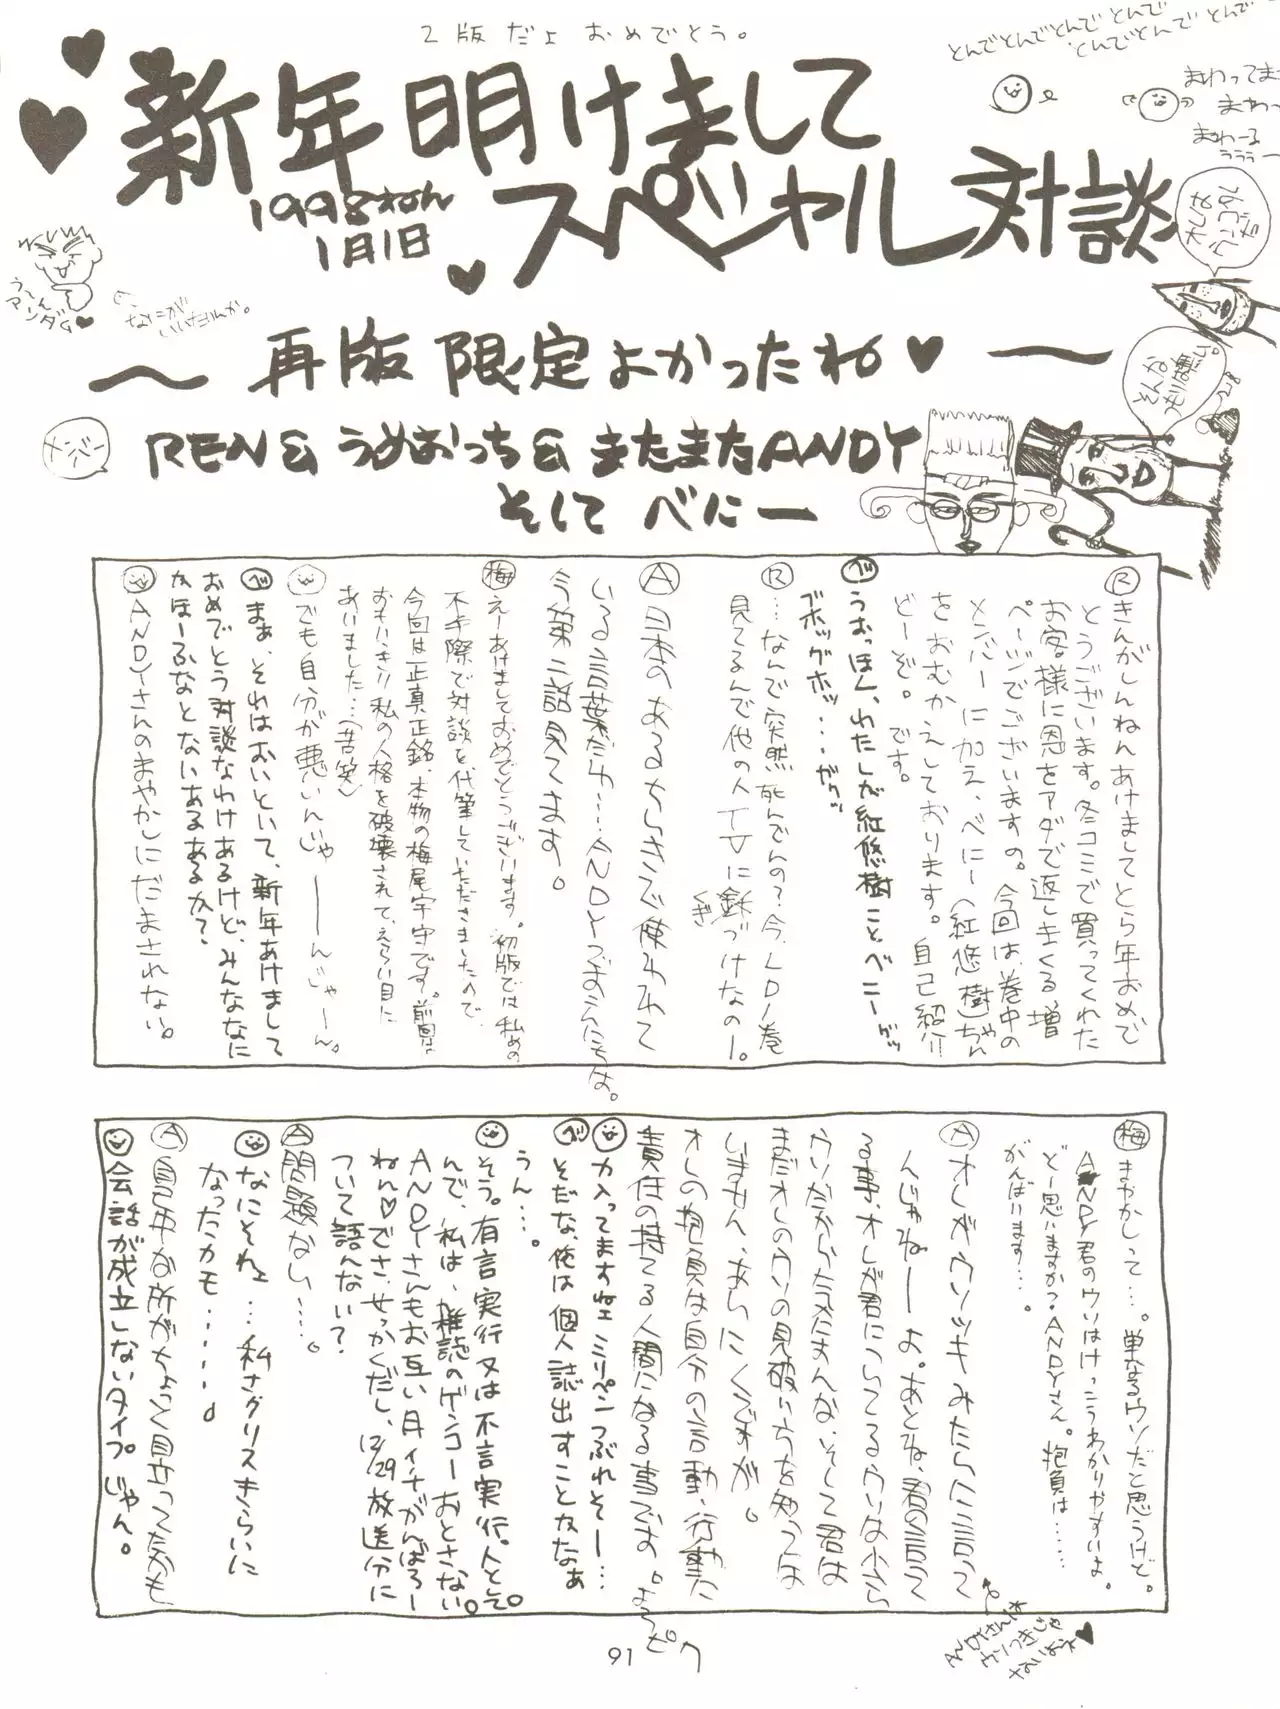 2版だよ おめでとう。
とんでとんでとんでとんで
とんでとんでとんで
まわって
まわーる
新年明けまして
スペシャル対談
1998ねん
1月1日
うーん
マンダム♥
なにが
いいだんか。
〜再版限定よかったね♥〜
そんな
メンバー
REN& うめおっち& またまたANDY
そして べにー
Ⓡきんがしんねんあけましてとら年おめで
とうございます。冬コミで買ってくれた
お客様に恩をアダで返しまくる増
ページでございますの。今回は、巻中の
メンバーに加え、べにー(紅悠樹)ちゃん
をおむかえしております。自己紹介
どーぞ。です。
べうおっほん、わたしが紅悠樹ことベニーゲッ
ブホッグホッ...ガクッ
Ⓡ…なんで突然死んでんの?今、LD1巻
見てるんで他の人TVに釘づけなのー。
くぎ
Ⓐ日本のあるちいきで使われて
いる言葉だわ…ANDYでまえたちは。
今第二話見てます。
梅えーあけましておめでとうございます。初版では私めの
不手際で対談を代筆していただきましたので、
今回は正真正銘、本物の梅尾宇守です。前回は
おもいっきり私の人格を破壊されて、えらい目に
あいました…(苦笑)
でも自分が悪いんじゃーーんじゃーん。
べまあ、それはおいといて、新年あけまして
おめでとう対談なわけあるけど、みんななに
かほーふなとないあるあるか?
ANDYさんのまやかしにだまされない。
梅まやかしって…。単なるウソだと思うけど。
ANDY君のウソはけっこうわかりやすいよ。
どー思いますか?ANDYさん。抱負は……
がんばいます…。
Ⓐオレがウソツキみたいに言って
んじゃねーーよ。あとね、君の言って
る事、オレが君にいってるウソは少し
ウソだからたえたまんな、そして君は
まだオレのウソの見破い方を知っては
いません、あしにくですが。
オレの抱負は自分の言動、行動に
責任の持てる人間になる事です。
カ入ってますねェミリペンつぶれそー…
べそだな、俺は個人誌出すことかなぁ
うん…。
そう。有言実行又は不言実行。人として。
んで、私は、雑誌のゲンコーおとさない。
ANDYさんもお互い月イチがんばろー
ねん♡でさ、せっかくだし、12/29放送分に
ついて語んない?
Ⓐ問題ない…。
なにそれェ…私さグリスきらいに
なったカモ……。
Ⓐ 自己中な所がちょっと目立ってたかも
会話が成立しないタイプじゃん。
91